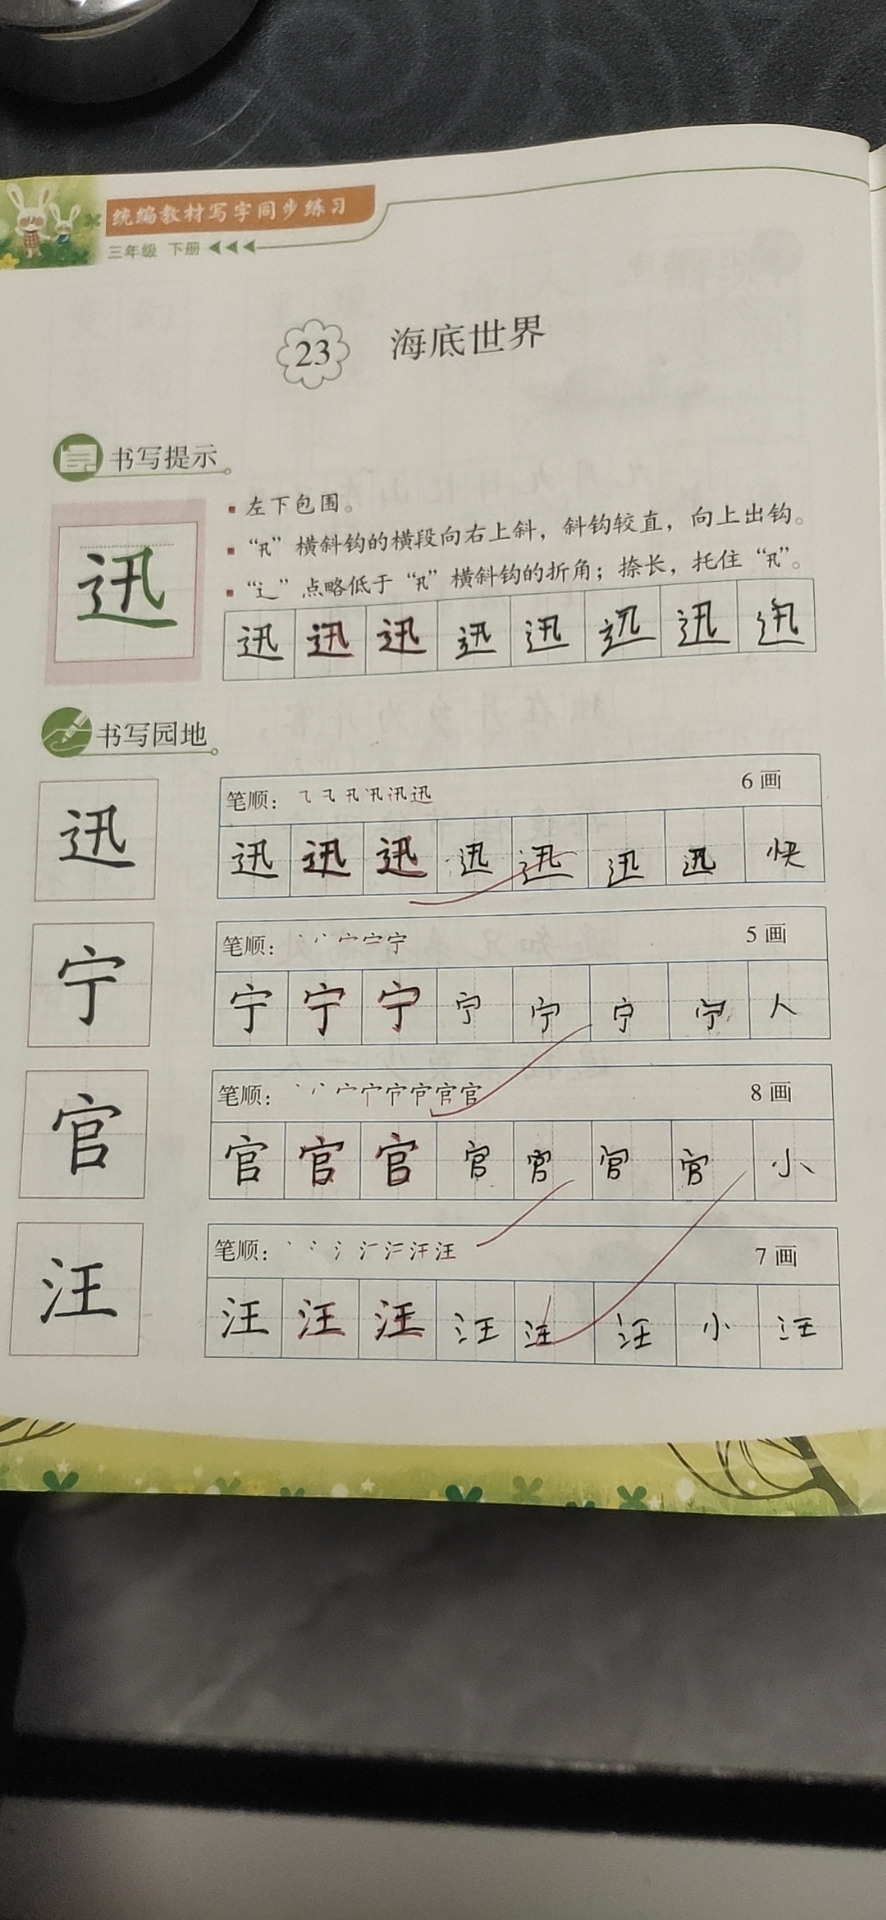 统编教材写字同步练习
三年级 下册
23 海底世界
书写提示
迅
左下包围。
“卂”横斜钩的横段向右上斜，斜钩较直，向上出钩。
“辶”点略低于“卂”横斜钩的折角；捺长，托住“卂”。
迅 迅 迅 迅 迅 迅 迅 迅
书写园地
迅
笔顺： 6 画
迅 迅 迅 迅 迅 迅 迅 快
宁
笔顺： 5 画
宁 宁 宁 宁 宁 宁 宁 人
官
笔顺： 8 画
官 官 官 官 官 官 官 小
汪
笔顺： 7 画
汪 汪 汪 汪 汪 汪 小 汪